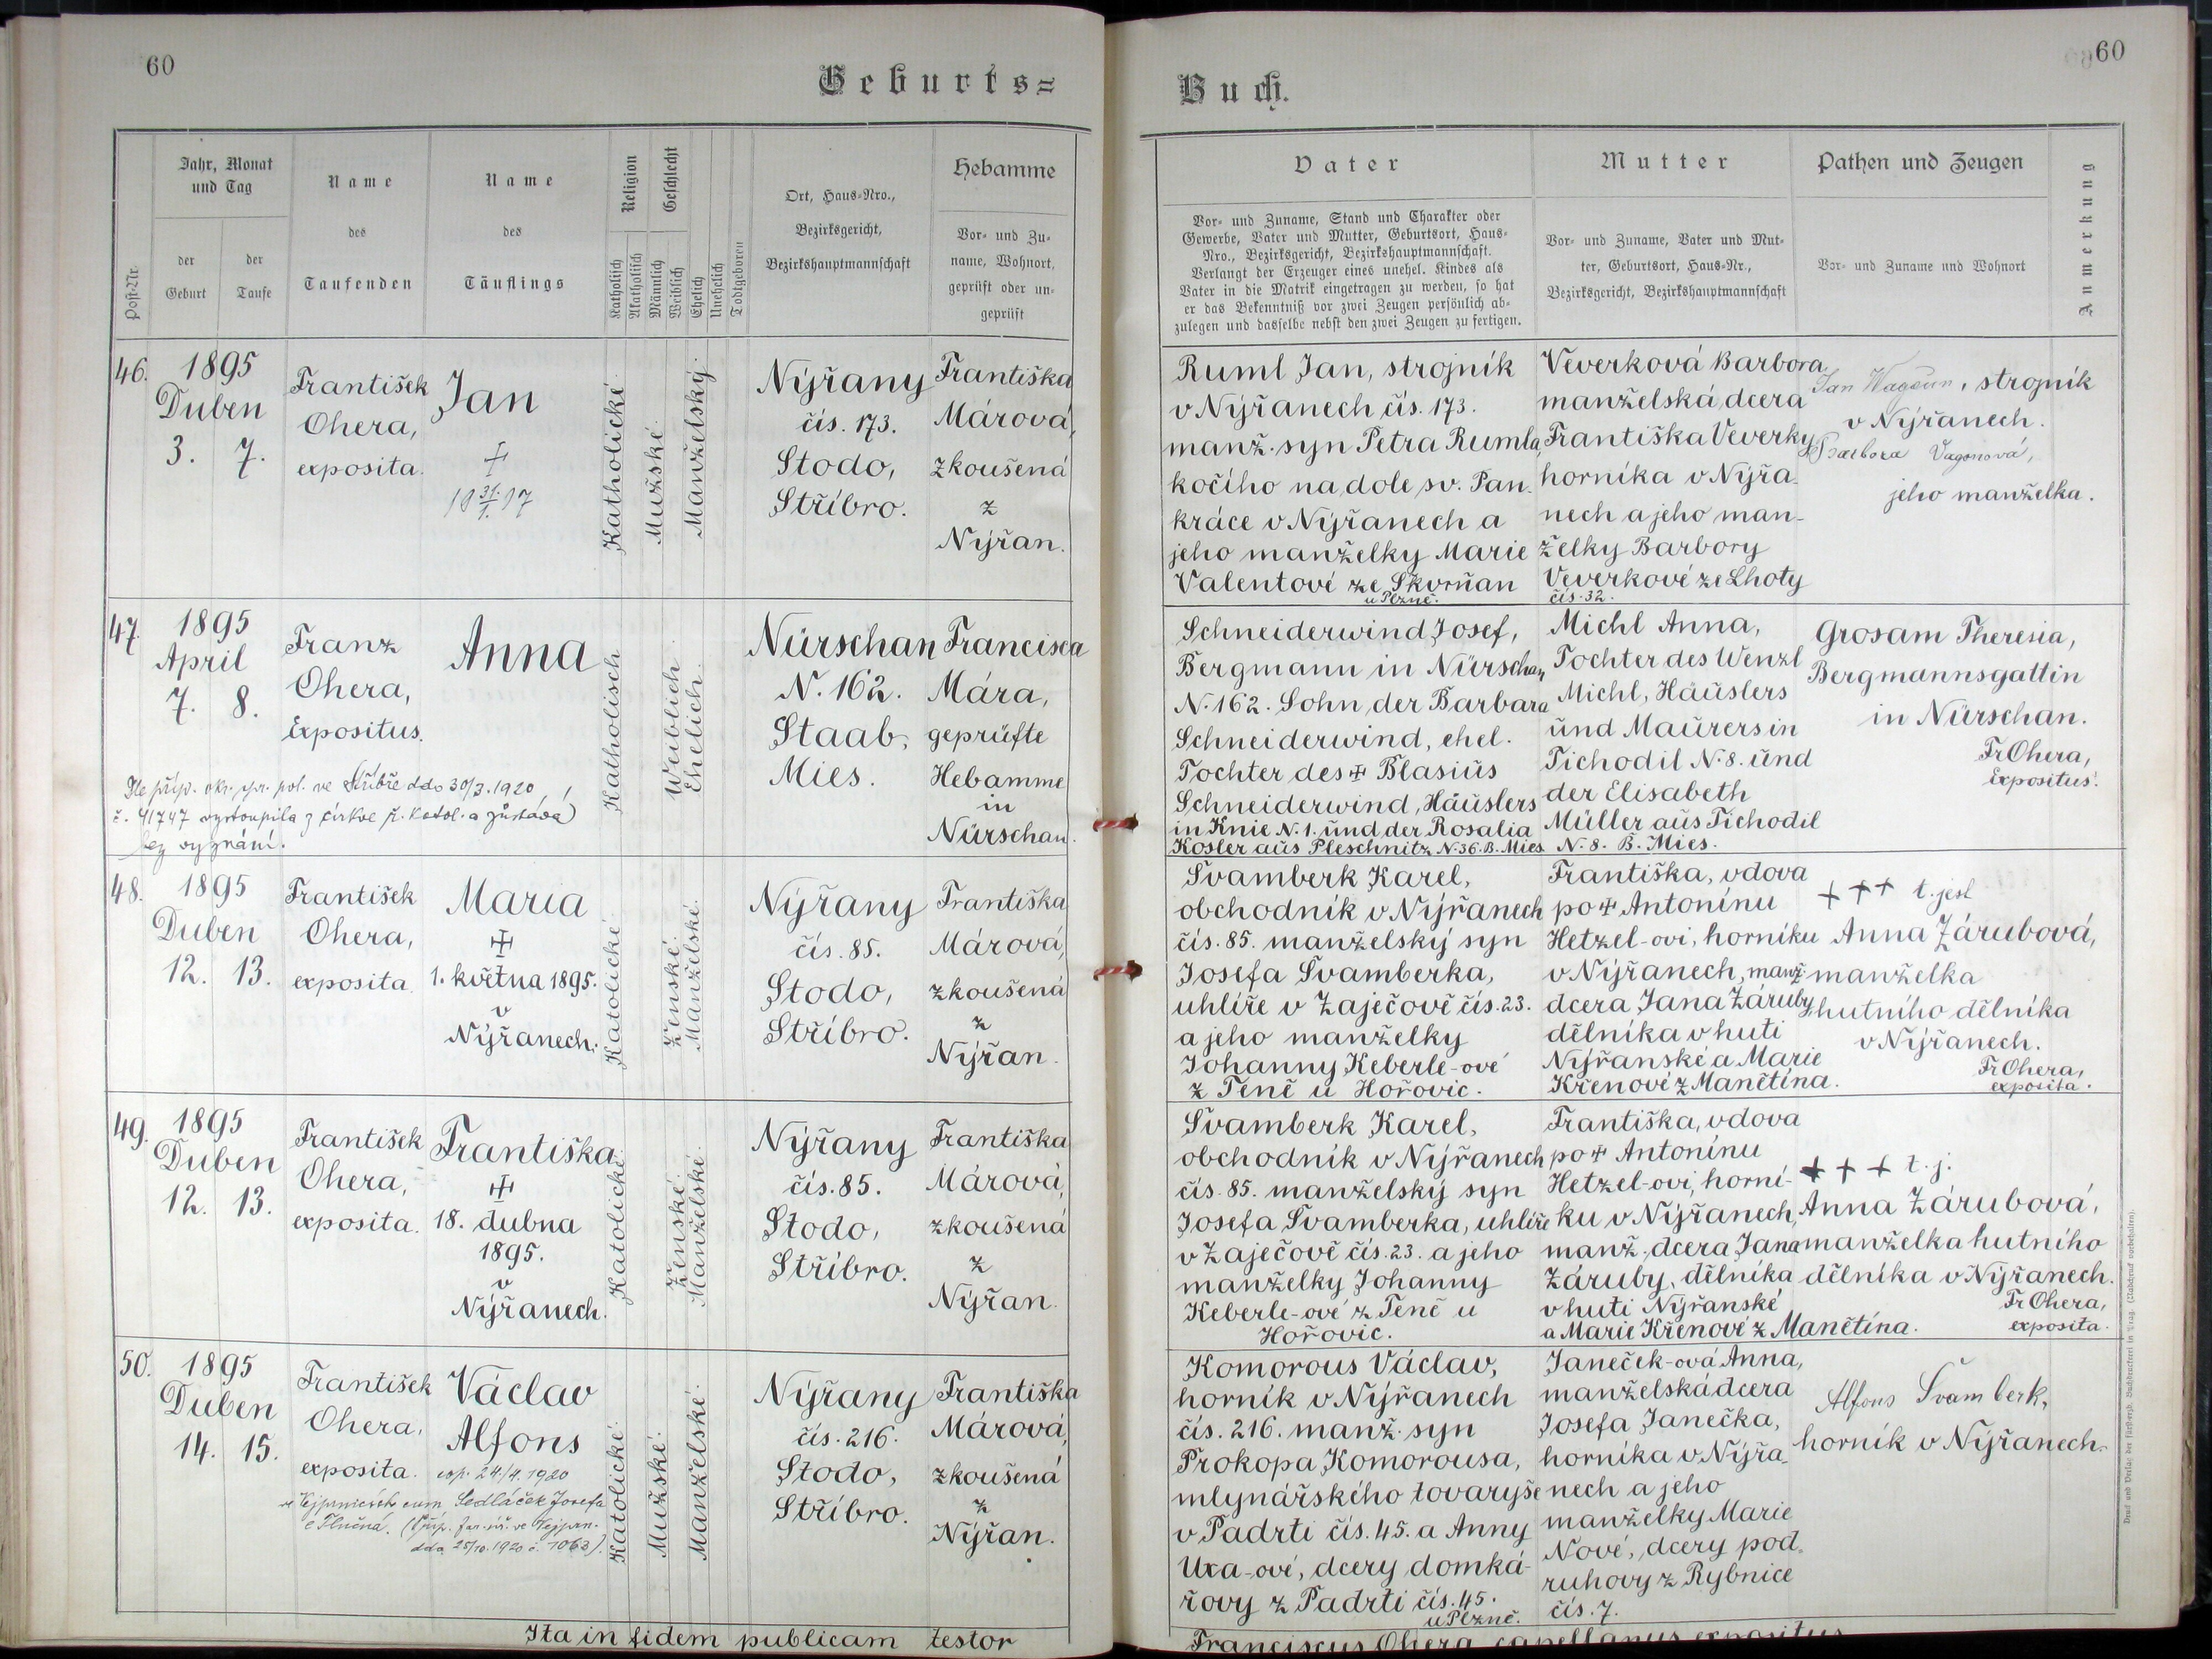 60
Geburts=
Jahr, Monat
und Tag
der
Geburt
der
Taufe
Post-Nr.
Name
des
Taufenden
Name
des
Täuflings
Religion
Katholisch
Akatholisch
Geschlecht
Männlich
Weiblich
Ehelich
Unehelich
Todtgeboren
Ort, Haus-Nro.,
Bezirksgericht,
Bezirkshauptmannschaft
Hebamme
Vor- und Zu-
name, Wohnort,
geprüft oder un-
geprüft
46.
1895
Duben
3. 7.
František
Ohera,
exposita.
Jan
+
19 31/1. 17
Katholické.
Mužské.
Manželský.
Nýřany
čís. 173.
Stodo,
Stříbro.
Františka
Márová,
zkoušená
z
Nýřan.
47.
1895
April
7. 8.
Franz
Ohera,
Expositus.
Anna
Katholisch
Weiblich
Ehelich.
Nürschan
N. 162.
Staab,
Mies.
Francisca
Mára,
geprüfte
Hebamme
in
Nürschan.
Dle příp. okr. spr. pol. ve Stříbře ddo 30/3. 1920
č. 41747 vystoupila z církve ř. katol. a zůstává
bez vyznání.
48.
1895
Duben
12. 13.
František
Ohera,
exposita.
Maria
+
1. května 1895.
v
Nýřanech.
Katolické.
Ženské.
Manželské.
Nýřany
čís. 85.
Stodo,
Stříbro.
Františka
Márová,
zkoušená
z
Nýřan.
49.
1895
Duben
12. 13.
František
Ohera,
exposita.
Františka
+
18. dubna
1895.
v
Nýřanech.
Katolické.
Ženské.
Manželské.
Nýřany
čís. 85.
Stodo,
Stříbro.
Františka
Márová,
zkoušená
z
Nýřan.
50.
1895
Duben
14. 15.
František
Ohera,
exposita.
Václav
Alfons
cop. 24./4. 1920
ve Vejprnicích cum Sedláček Josefa
z Tlučná. (Příp. far. úř. ve Vejprn.
ddo 25/10. 1920 č. 1063).
Katolické.
Mužské.
Manželské.
Nýřany
čís. 216.
Stodo,
Stříbro.
Františka
Márová,
zkoušená
z
Nýřan.
Ita in fidem publicam testor
60
Buch.
Vater
Vor- und Zuname, Stand und Charakter oder
Gewerbe, Vater und Mutter, Geburtsort, Haus-
Nro., Bezirksgericht, Bezirkshauptmannschaft.
Verlangt der Erzeuger eines unehel. Kindes als
Vater in die Matrik eingetragen zu werden, so hat
er das Bekenntniß vor zwei Zeugen persönlich ab-
zulegen und dasselbe nebst den zwei Zeugen zu fertigen.
Mutter
Vor- und Zuname, Vater und Mut-
ter, Geburtsort, Haus-Nr.,
Bezirksgericht, Bezirkshauptmannschaft
Pathen und Zeugen
Vor- und Zuname und Wohnort
Anmerkung
Ruml Jan, strojník
v Nýřanech čís. 173.
manž. syn Petra Rumla,
kočího na dole sv. Pan-
kráce v Nýřanech a
jeho manželky Marie
Valentové ze Skvrňan
u Plzně.
Veverková Barbora
manželská dcera
Františka Veverky
horníka v Nýřa-
nech a jeho man-
želky Barbory
Veverkové ze Lhoty
čís. 32.
Jan Wagoun, strojník
v Nýřanech.
Barbora Vagonová,
jeho manželka.
Schneiderwind Josef,
Bergmann in Nürschan
N. 162. Sohn der Barbara
Schneiderwind, ehel.
Tochter des + Blasius
Schneiderwind, Häuslers
in Knie N. 1. und der Rosalia
Kosler aus Pleschnitz N. 36. B. Mies
Michl Anna,
Tochter des Wenzl
Michl, Häuslers
und Maurers in
Tichodil N. 8. und
der Elisabeth
Müller aus Tichodil
N. 8. B. Mies.
Grosam Theresia,
Bergmannsgattin
in Nürschan.
Fr Ohera,
Expositus.
Švamberk Karel,
obchodník v Nýřanech
čís. 85. manželský syn
Josefa Švamberka,
uhlíře v Zaječově čís. 23.
a jeho manželky
Johanny Keberle-ové
z Teně u Hořovic.
Františka, vdova
po + Antonínu
Hetzel-ovi, horníku
v Nýřanech, manž.
dcera Jana Záruby
dělníka v huti
Nýřanské a Marie
Křenové z Manětína.
+ + + t. jest
Anna Zárubová,
manželka
hutního dělníka
v Nýřanech.
Fr Ohera,
exposita.
Švamberk Karel,
obchodník v Nýřanech
čís. 85. manželský syn
Josefa Švamberka, uhlíře
v Zaječově čís. 23. a jeho
manželky Johanny
Keberle-ové z Teně u
Hořovic.
Františka, vdova
po + Antonínu
Hetzel-ovi, horní-
ku v Nýřanech,
manž. dcera Jana
Záruby, dělníka
v huti Nýřanské
a Marie Křenové z Manětína.
+ + + t. j.
Anna Zárubová,
manželka hutního
dělníka v Nýřanech.
Fr Ohera,
exposita.
Komorous Václav,
horník v Nýřanech
čís. 216. manž. syn
Prokopa Komorousa,
mlynářského tovaryše
v Padrti čís. 45. a Anny
Uxa-ové, dcery domká-
řovy z Padrti čís. 45.
u Plzně.
Janeček-ová Anna,
manželská dcera
Josefa Janečka,
horníka v Nýřa-
nech a jeho
manželky Marie
Nové, dcery pod-
ruhovy z Rybnice
čís. 7.
Alfons Švamberk,
horník v Nýřanech.
Franciscus Ohera capellanus expositus